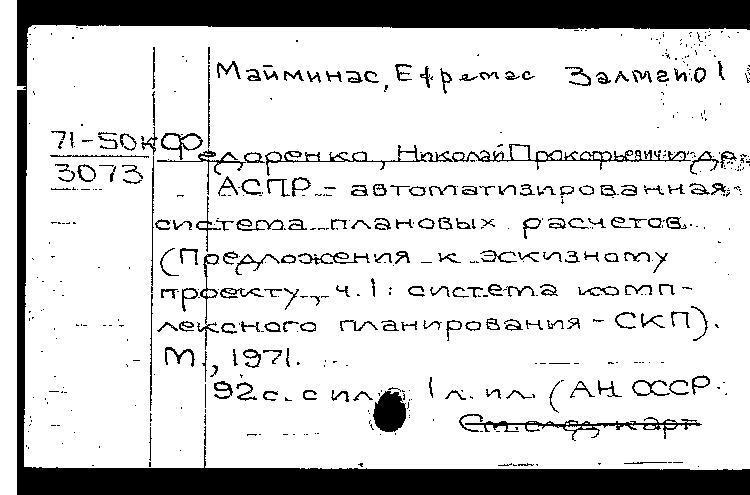 Майминас, Ефремас
71-50к
3073
Федоренко, Николай Прокофьевич и др
АСПР - автоматизированная
система плановых расчетов.
(Предложения к эскизному
проекту, ч.1: система комп-
лексного планирования - СКП).
М., 1971.
92 с. с ил. 1 л. ил. (АН СССР.
См. след. карт